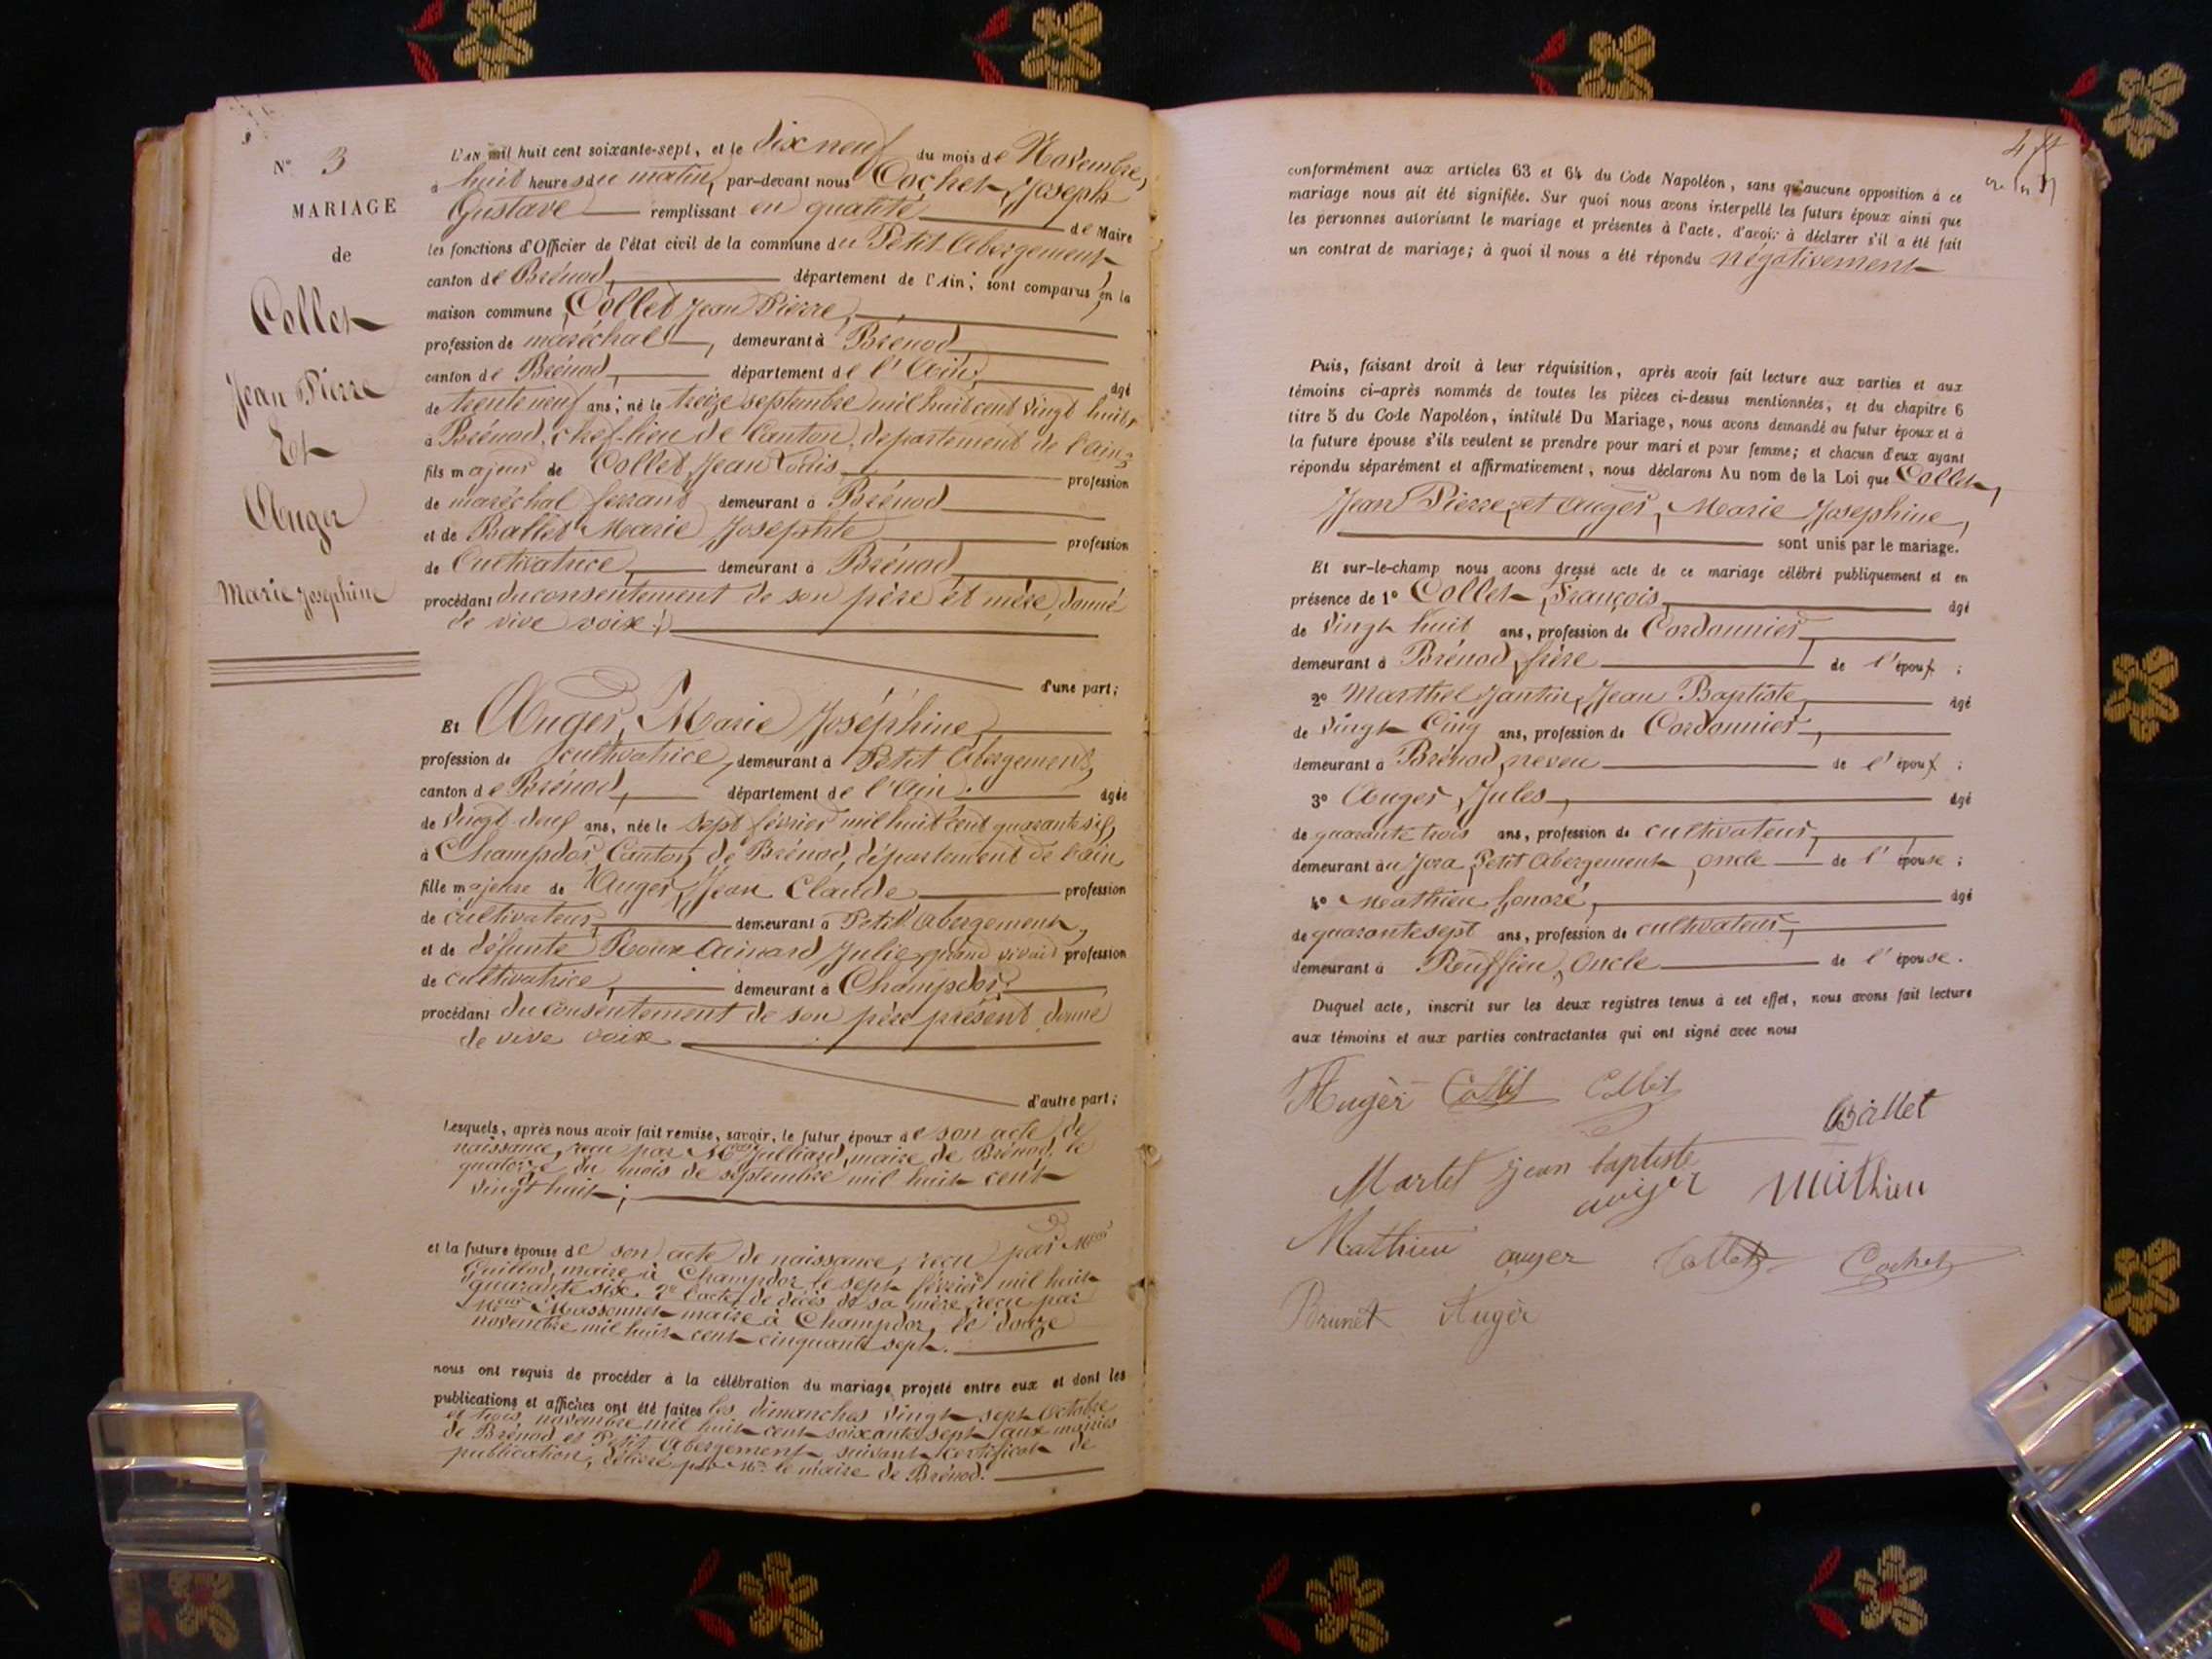 N° 3
MARIAGE
de
Collet
Jean Pierre
Et
Auger
Marie Josephine
L'AN mil huit cent soixante-sept, et le dix neuf du mois de Novembre,
à huit heures du matin, par-devant nous Cochet, Joseph
Gustave remplissant en qualité de Maire
les fonctions d'Officier de l'état civil de la commune du Petit Abergement,
canton de Brénod, département de l'Ain; sont comparus en la
maison commune, Collet Jean Pierre,
profession de maréchal, demeurant à Brénod
canton de Brénod, département de l'Ain, âgé
de trente neuf ans; né le treize septembre mil huit cent vingt huit,
à Brénod, chef-lieu de Canton, département de l'ain;
fils majeur de Collet Jean Louis profession
de maréchal ferrant demeurant à Brénod
et de Ballet Marie Josephte profession
de Cultivatrice, demeurant à Brénod,
procédant du consentement de son père et mère, donné
de vive voix;
d'une part;
Et Auger, Marie Joséphine,
profession de cultivatrice, demeurant à Petit Abergement,
canton de Brénod, département de l'Ain. âgée
de vingt deux ans, née le sept février mil huit cent quarante six,
à Champdor, Canton de Brénod, département de l'ain,
fille majeure de Auger, Jean Claude profession
de cultivateur, demeurant à Petit Abergement,
et de défunte Roux Aimard Julie, quand vivait profession
de cultivatrice, demeurant à Champdor,
procédant du consentement de son père présent donné
de vive voix
d'autre part;
Lesquels, après nous avoir fait remise, savoir, le futur époux de son acte de
naissance, reçu par Juilliard, maire de Brénod, le
quatorze du mois de septembre mil huit cent
vingt huit;
et la future épouse de son acte de naissance, reçu par
Guillod, maire à Champdor le sept février mil huit
quarante six, 2° l'acte de décès de sa mère, reçu par
Massonnet maire à Champdor, le douze
novembre mil huit cent cinquante sept.
nous ont requis de procéder à la célébration du mariage projeté entre eux et dont les
publications et affiches ont été faites les dimanches vingt sept Octobre
et trois novembre mil huit cent soixante sept, aux mairies
de Brénod et Petit Abergement, suivant certificat de
publication, délivré par Mr le maire de Brénod.
conformément aux articles 63 et 64 du Code Napoléon, sans qu'aucune opposition à ce
mariage nous ait été signifiée. Sur quoi nous avons interpellé les futurs époux ainsi que
les personnes autorisant le mariage et présentes à l'acte, d'avoir à déclarer s'il a été fait
un contrat de mariage; à quoi il nous a été répondu négativement
Puis, faisant droit à leur réquisition, après avoir fait lecture aux parties et aux
témoins ci-après nommés de toutes les pièces ci-dessus mentionnées, et du chapitre 6
titre 5 du Code Napoléon, intitulé Du Mariage, nous avons demandé au futur époux et à
la future épouse s'ils veulent se prendre pour mari et pour femme; et chacun d'eux ayant
répondu séparément et affirmativement, nous déclarons Au nom de la Loi que Collet,
Jean Pierre, et Auger, Marie Josephine,
sont unis par le mariage.
Et sur-le-champ nous avons dressé acte de ce mariage célébré publiquement et en
présence de 1° Collet, François, âgé
de vingt huit ans, profession de Cordonnier,
demeurant à Brénod, frère de l'époux;
2° Marthel Jantin, Jean Baptiste, âgé
de vingt Cinq ans, profession de Cordonnier,
demeurant à Brénod, neveu de l'époux;
3° Auger, Jules, âgé
de quarante trois ans, profession de cultivateur,
demeurant au Jora, Petit Abergement, oncle de l'épouse;
4° Mathieu honoré, âgé
de quarante sept ans, profession de cultivateur,
demeurant à Ruffieu, Oncle de l'épouse.
Duquel acte, inscrit sur les deux registres tenus à cet effet, nous avons fait lecture
aux témoins et aux parties contractantes qui ont signé avec nous
Auger Collet Collet
Ballet
Martel jean baptiste
auger Mathieu
Mathieu auger Collet Cochet
Brunet Auger